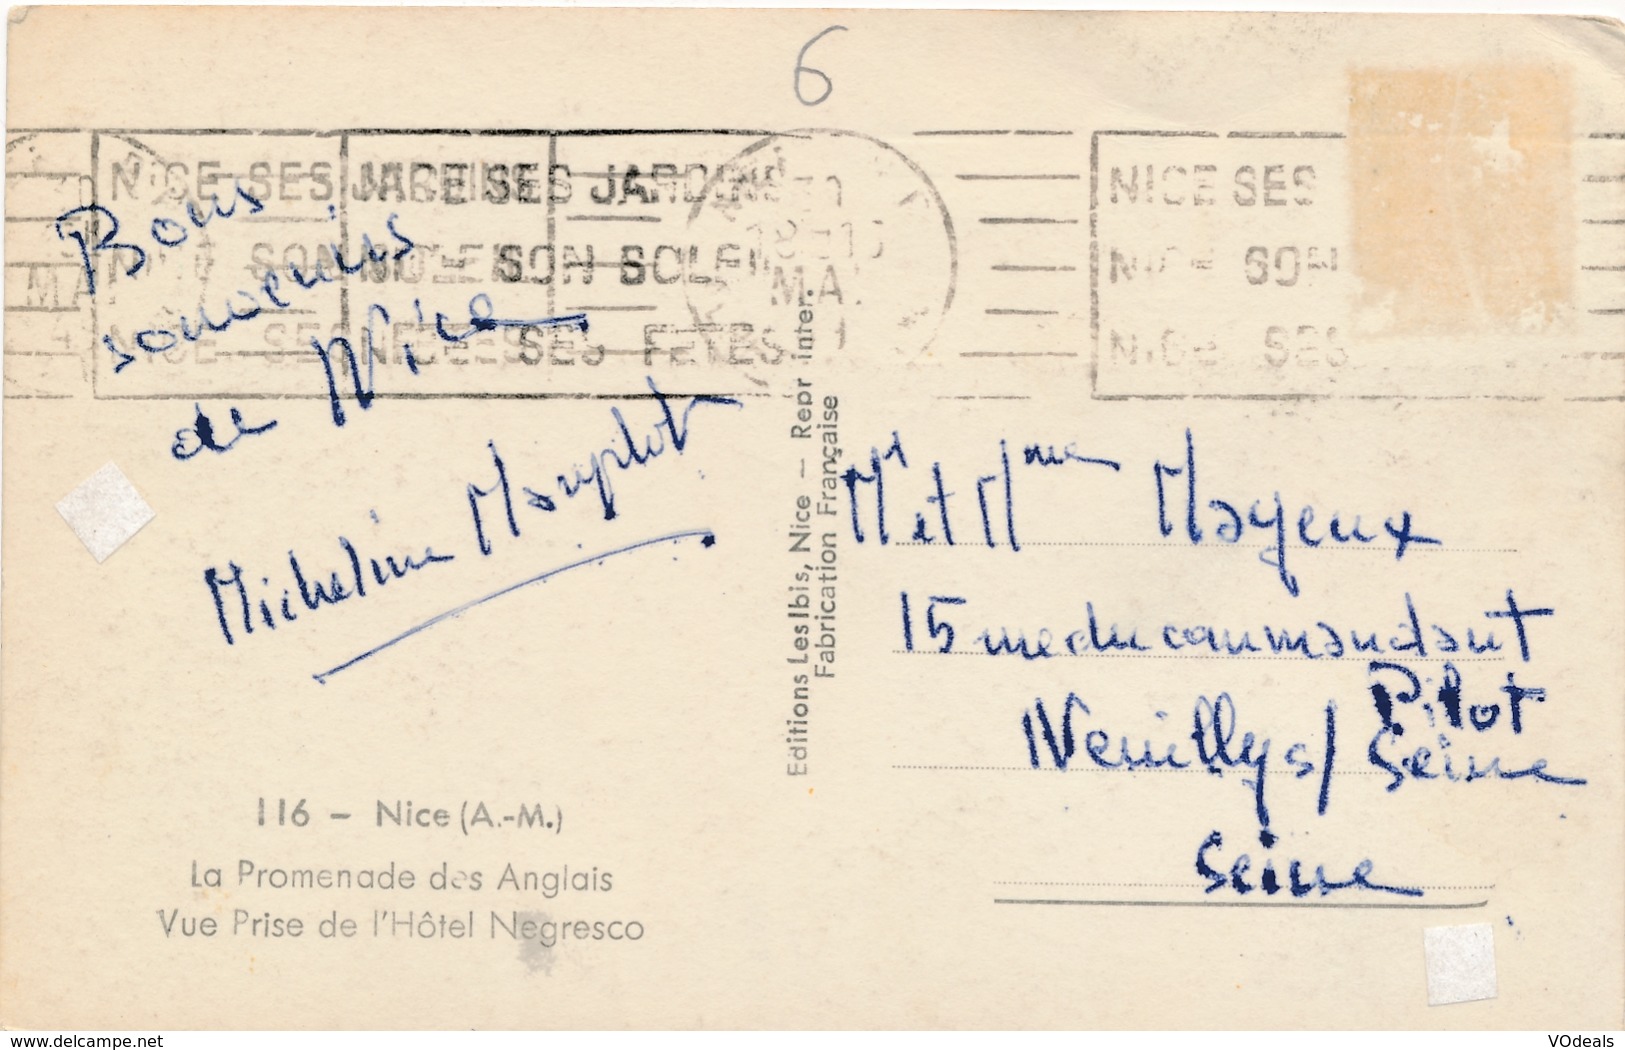 6
NICE SES JARDINS
NICE SON SOLEIL
NICE SES FETES
NICE SES
NICE SON
NICE SES
Bons
souvenirs
de Nice
Micheline
Editions Les Ibis, Nice — Repr inter.
Fabrication Française
Mr et Mme Mayeux
15 rue du commandant
Pilot
Neuilly s/ Seine
Seine
116 - Nice (A.-M.)
La Promenade des Anglais
Vue Prise de l'Hôtel Negresco
www.delcampe.net
VOdeals